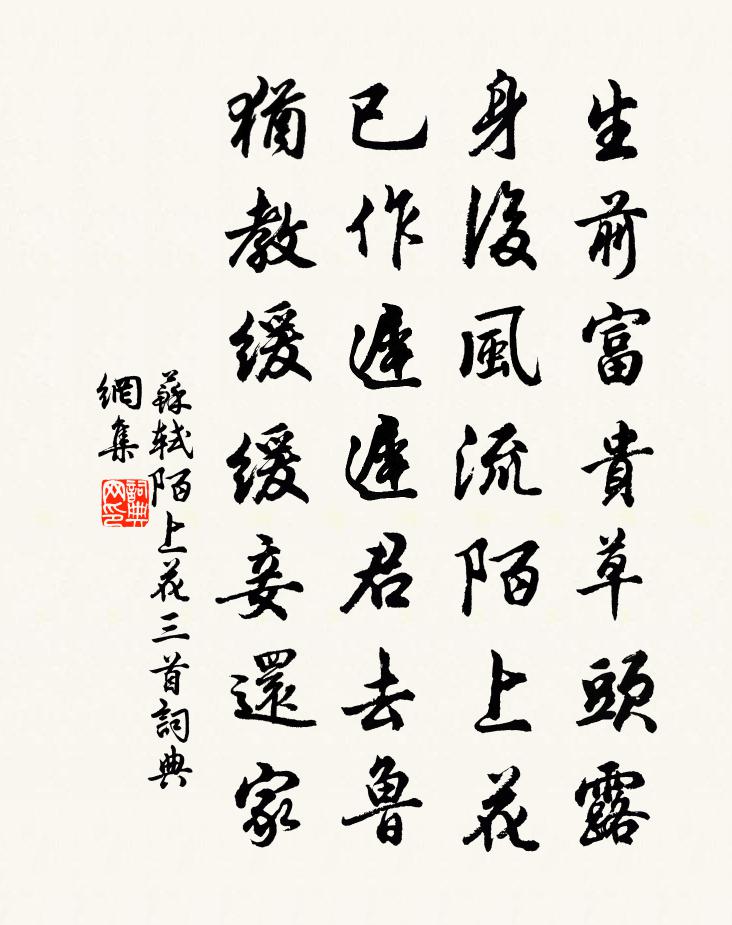 生前富貴草頭露
身後風流陌上花
已作遲遲君去魯
猶教緩緩妾還家
蘇軾陌上花三首詞典
網集
詞典
网印